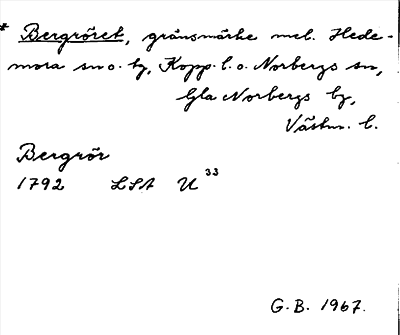 * Bergröret, gränsmärke mel. Hede-
mora sn o. by, Kopp. l. o. Norbergs sn,
Gla Norbergs by,
Västm. l.
Bergrör
1792 LSA U 33
G.B. 1967.